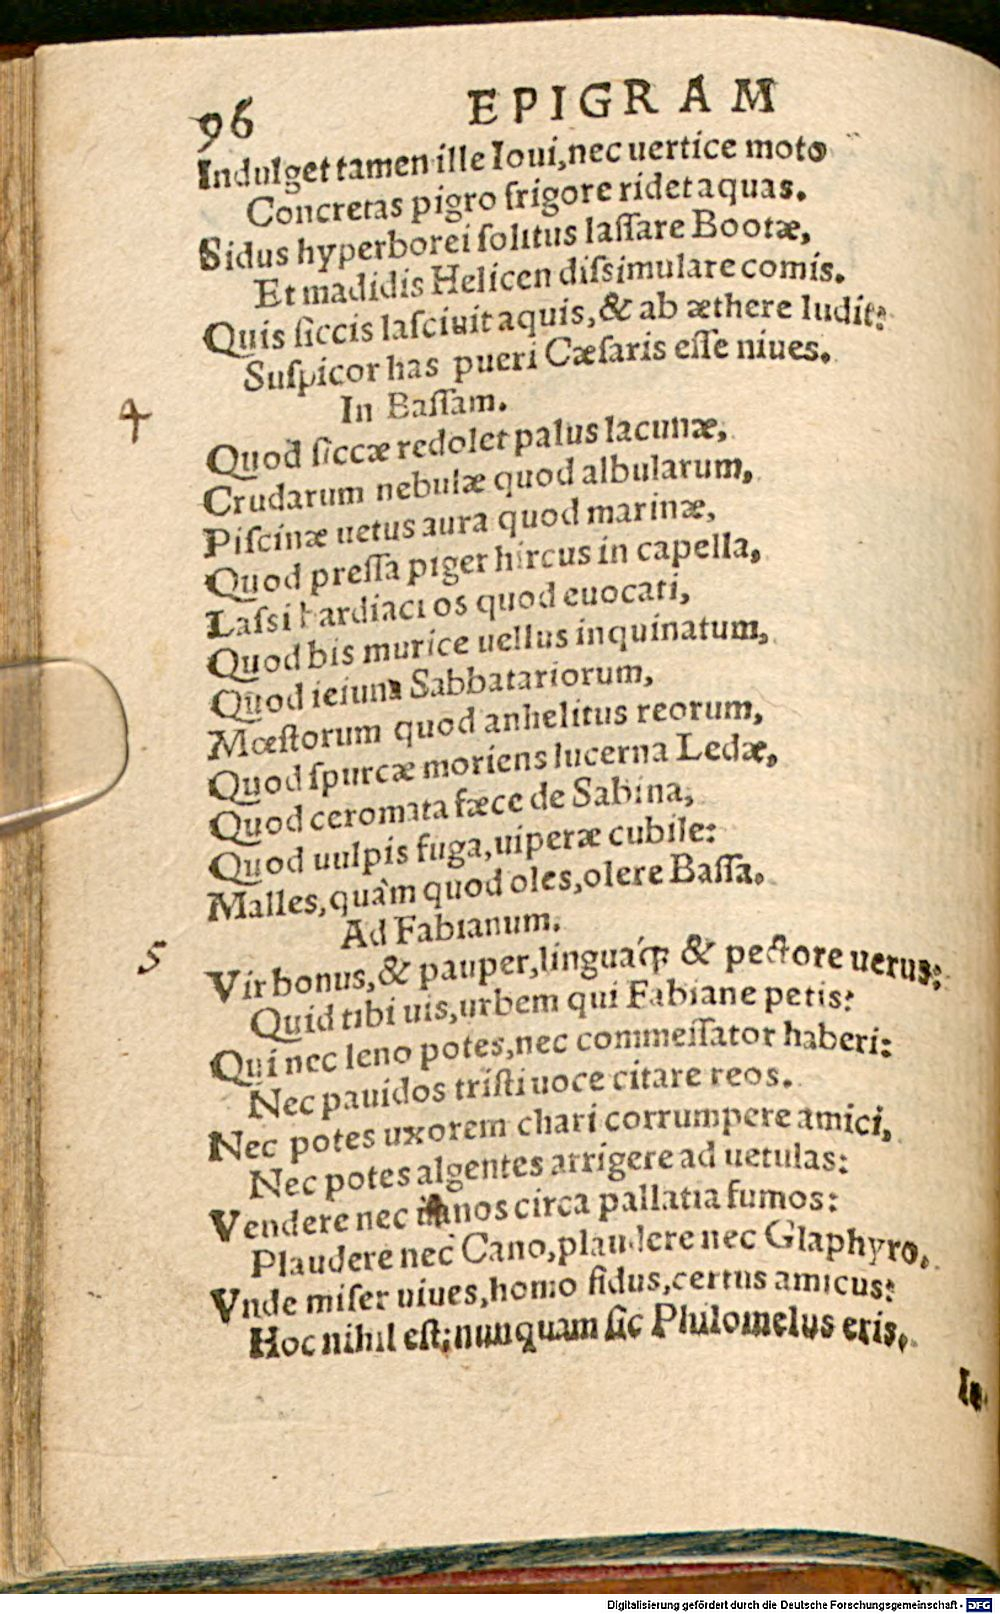 96 EPIGRAM
Indulget tamen ille Ioui, nec uertice moto
Concretas pigro frigore ridet aquas.
Sidus hyperborei solitus lassare Bootæ,
Et madidis Helicen dissimulare comis.
Quis siccis lasciuit aquis, & ab æthere ludit?
Suspicor has pueri Cæsaris esse niues.
In Bassam.
4
Quod siccæ redolet palus lacunæ,
Crudarum nebulæ quod albularum,
Piscinæ uetus aura quod marinæ,
Quod pressa piger hircus in capella,
Lassi bardiaci os quod euocati,
Quod bis murice uellus inquinatum,
Quod ieiuna Sabbatariorum,
Mœstorum quod anhelitus reorum,
Quod spurcæ moriens lucerna Ledæ,
Quod ceromata fæce de Sabina,
Quod uulpis fuga, uiperæ cubile:
Malles, quàm quod oles, olere Bassa.
Ad Fabianum.
5
Vir bonus, & pauper, linguáq; & pectore uerus:
Quid tibi uis, urbem qui Fabiane petis?
Qui nec leno potes, nec commessator haberi:
Nec pauidos tristi uoce citare reos.
Nec potes uxorem chari corrumpere amici,
Nec potes algentes arrigere ad uetulas:
Vendere nec uanos circa pallatia fumos:
Plaudere nec Cano, plaudere nec Glaphyro.
Vnde miser uiues, homo fidus, certus amicus?
Hoc nihil est; nunquam sic Philomelus eris.
In
Digitalisierung gefördert durch die Deutsche Forschungsgemeinschaft - DFG